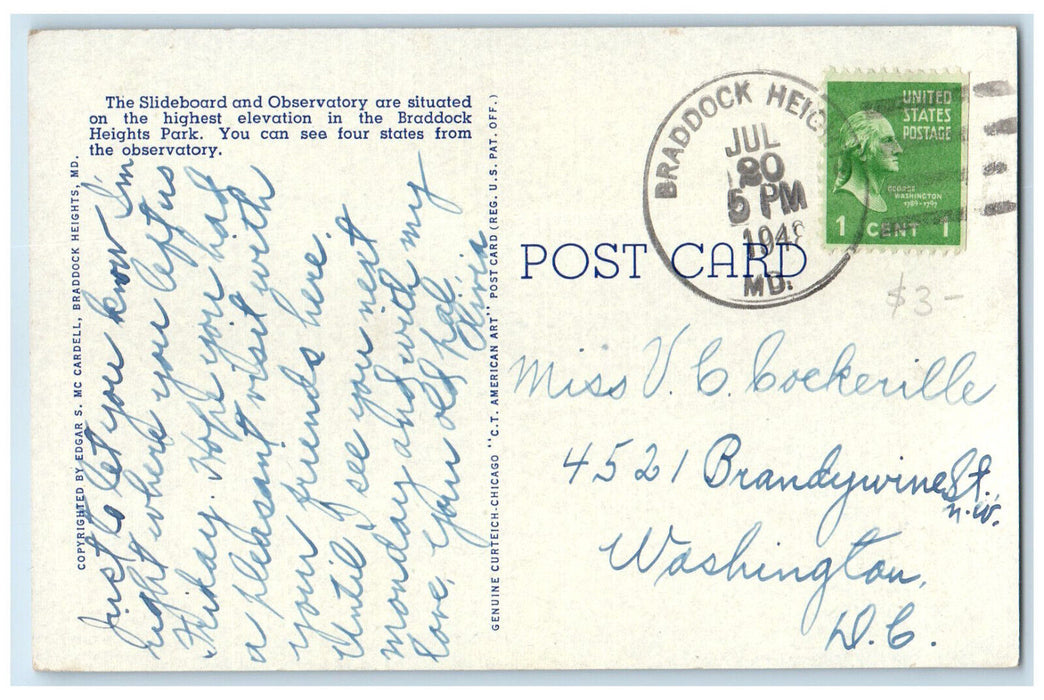 The Slideboard and Observatory are situated
on the highest elevation in the Braddock
Heights Park. You can see four states from
the observatory.
COPYRIGHTED BY EDGAR S. MC CARDELL, BRADDOCK HEIGHTS, MD.
Just to let you know I'm
right where you left us
Friday. Hope you had
a pleasant visit with
your friends here.
Until I see you next
monday and with my
love, your old pal
GENUINE CURTEICH-CHICAGO "C.T. AMERICAN ART" POST CARD (REG. U.S. PAT. OFF.)
BRADDOCK HEIG
JUL
20
5 PM
1948
MD.
UNITED
STATES
POSTAGE
GEORGE
WASHINGTON
1789-1797
1 CENT 1
POST CARD
$3-
Miss V. C. Cockerille
4521 Brandywine St.
n.w.
Washington,
D.C.